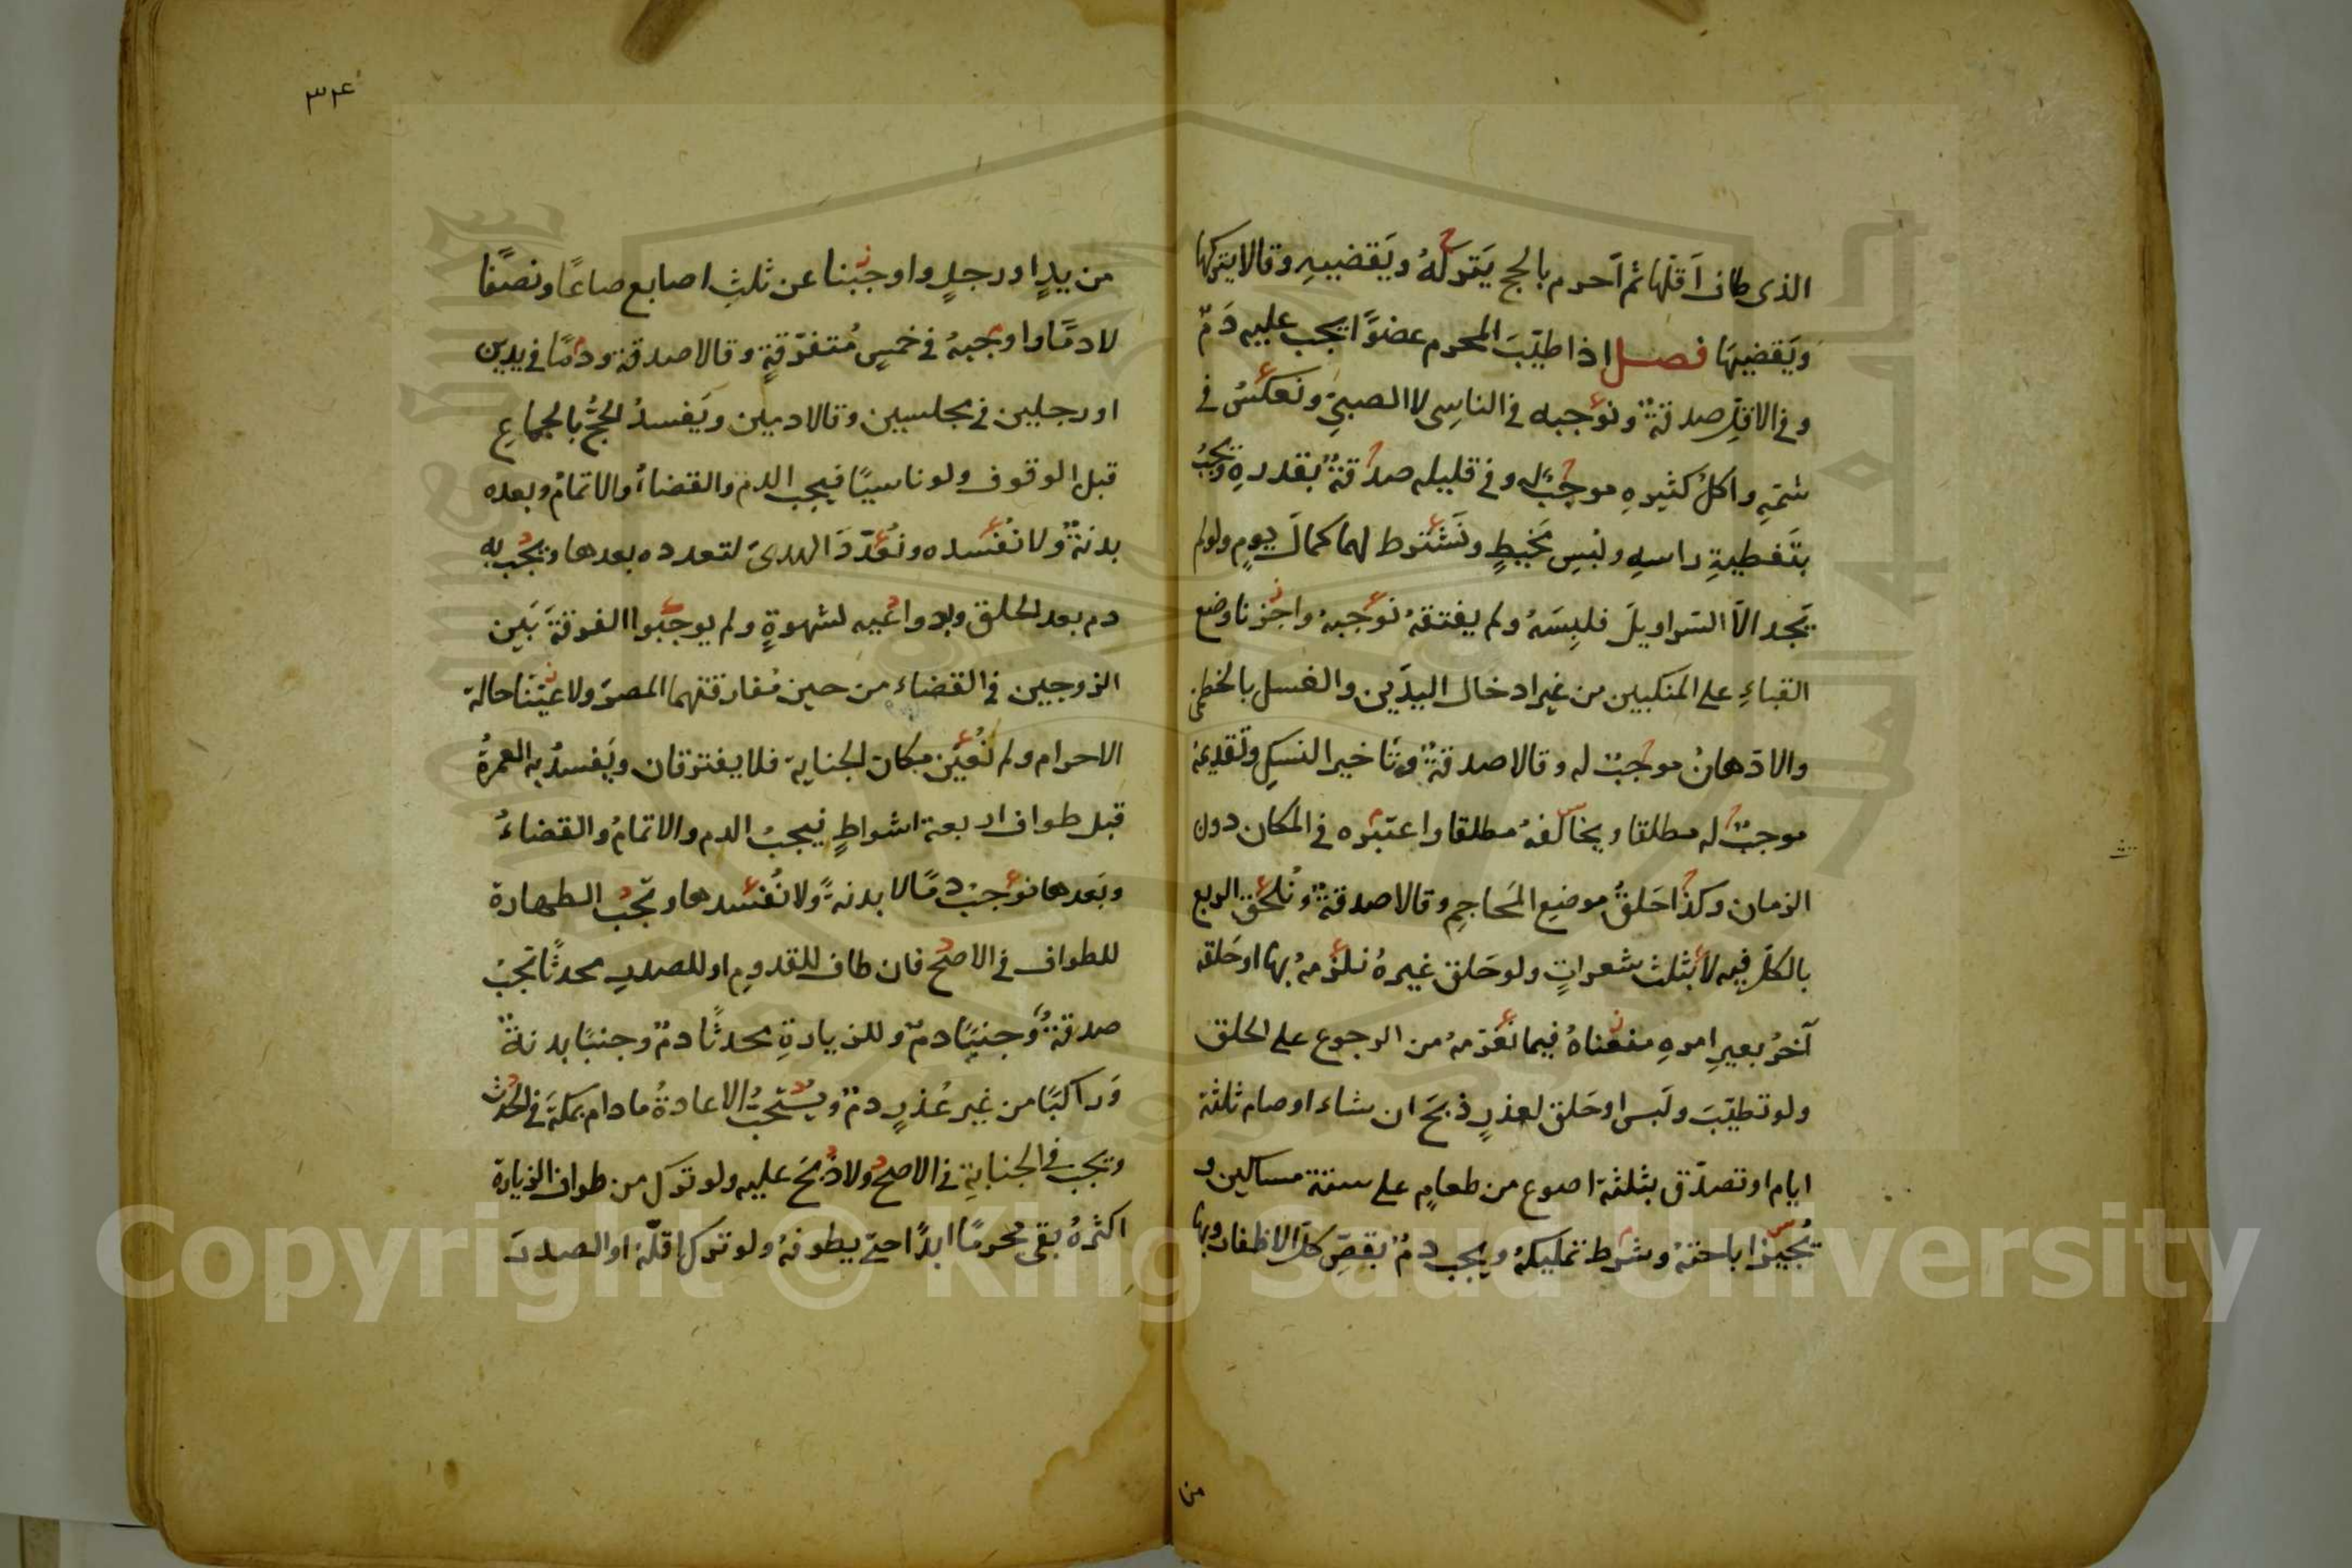 الذى طاف اَقلّها ثم اَحرم بالحج يَتركهُ ويَقضييهِ وقالا يتركها
ويَقضيهَا فصل اذا طيّبَ المحرم عضوًا يجب عليه دَمٌ
وفي الاقلّ صدقةٌ ونوجبه فى الناسِى لا الصبيّ ونعكسُ فى
شمّهِ واكلُ كثيرهِ موجبٌ له وفى قليله صدقةٌ بقدرهِ ويجبُ
بتَغطيةِ راسهِ ولبْسِ مَخيطٍ ونَشترط لهما كمالَ يومٍ ولو لم
يَجد الاّ السّراويلَ فلبِسَهُ ولم يفتقهُ نوجبهُ واجزنا وضع
القباءِ على المنكبين من غير ادخال اليدَين والغسل بالخطمى
والادّهانُ موجبٌ له وقالا صدقةٌ وتَاخير النسكِ وتَقديمهُ
موجبٌ له مطلقا ويخالفهُ مطلقا واعتبره فى المكان دون
الزمان وكذا حَلقُ موضعِ المَحاجِمِ وقالا صدقةٌ ونُلحق الربع
بالكلّ فيه لا بثلث شعراتٍ ولو حَلق غيرهُ نلزمهُ بها او حَلقه
آخرُ بغيرِ امرهِ منعناهُ فيما نغرّمهُ من الرجوع على الحلق
ولو تطيّبَ ولَبس او حَلق لعذرٍ ذبَحَ ان شاء او صام ثلثة
ايام او تصدّق بثلثة اصوع من طعامٍ على ستة مساكين و
يُجيز اباحتهُ وشرط تمليكهُ ويجب دمٌ بقصّ كلّ الاظفار وبها
من
٣٤
من يدٍ او رجلٍ واوجبنا عن ثلثِ اصابع صاعًا ونصفًا
لا دمًا واوجبهُ فى خمسٍ مُتفرّقةٍ وقالا صدقة ودمًا فى يدين
او رجلين فى مجلسين وقالا دمين ويَفسدُ الحجُّ بالجماعِ
قبل الوقوف ولو ناسيًا فيجب الدم والقضاءُ والاتمامُ وبعده
بدنةٌ ولا نُفسده ونُعدّدَ الهدىَ لتعدده بعدها ويجب به
دم بعد الحلق وبدواعيه لشهوةٍ ولم يوجبوا الفرقة بَين
الزوجين فى القضاء من حين مُفارقتهما المصرَ ولا عيّنّا حالة
الاحرام ولم نُعيّن مكان الجناية فلا يفترقان ويَفسدُ به العمرةُ
قبل طواف اربعة اشواطٍ فيجبُ الدم والاتمامُ والقضاءُ
وبَعدها نوجبُ دمًا لا بدنةً ولا نُفسدها وتجبُ الطهارة
للطواف فى الاصح فان طاف للقدومِ او للصدرِ محدثًا تجبُ
صدقةٌ وجنبًا دمٌ وللزيارةِ محدثًا دمٌ وجنبًا بدنةٌ
وَراكبًا من غير عُذرٍ دمٌ ويُستحبُّ الاعادةُ ما دام بمكةَ فى الحدث
وتجب فى الجنابةِ فى الاصح ولا ذبحَ عليه ولو ترك من طواف الزيارة
اكثرهُ بقى مُحرمًا ابدًا حتى يطوفهُ ولو ترك اقلّهُ او الصدرَ
Copyright © King Saud University